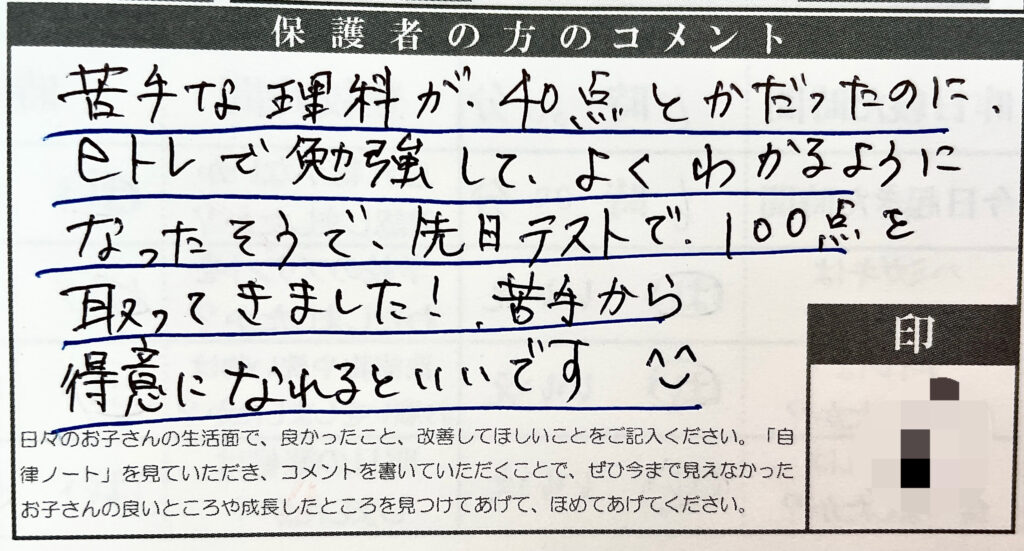 保護者の方のコメント
苦手な理科が、40点とかだったのに、
eトレで勉強して、よくわかるように
なったそうで、先日テストで、100点を
取ってきました！苦手から
得意になれるといいです ^^
印
日々のお子さんの生活面で、良かったこと、改善してほしいことをご記入ください。「自
律ノート」を見ていただき、コメントを書いていただくことで、ぜひ今まで見えなかった
お子さんの良いところや成長したところを見つけてあげて、ほめてあげてください。